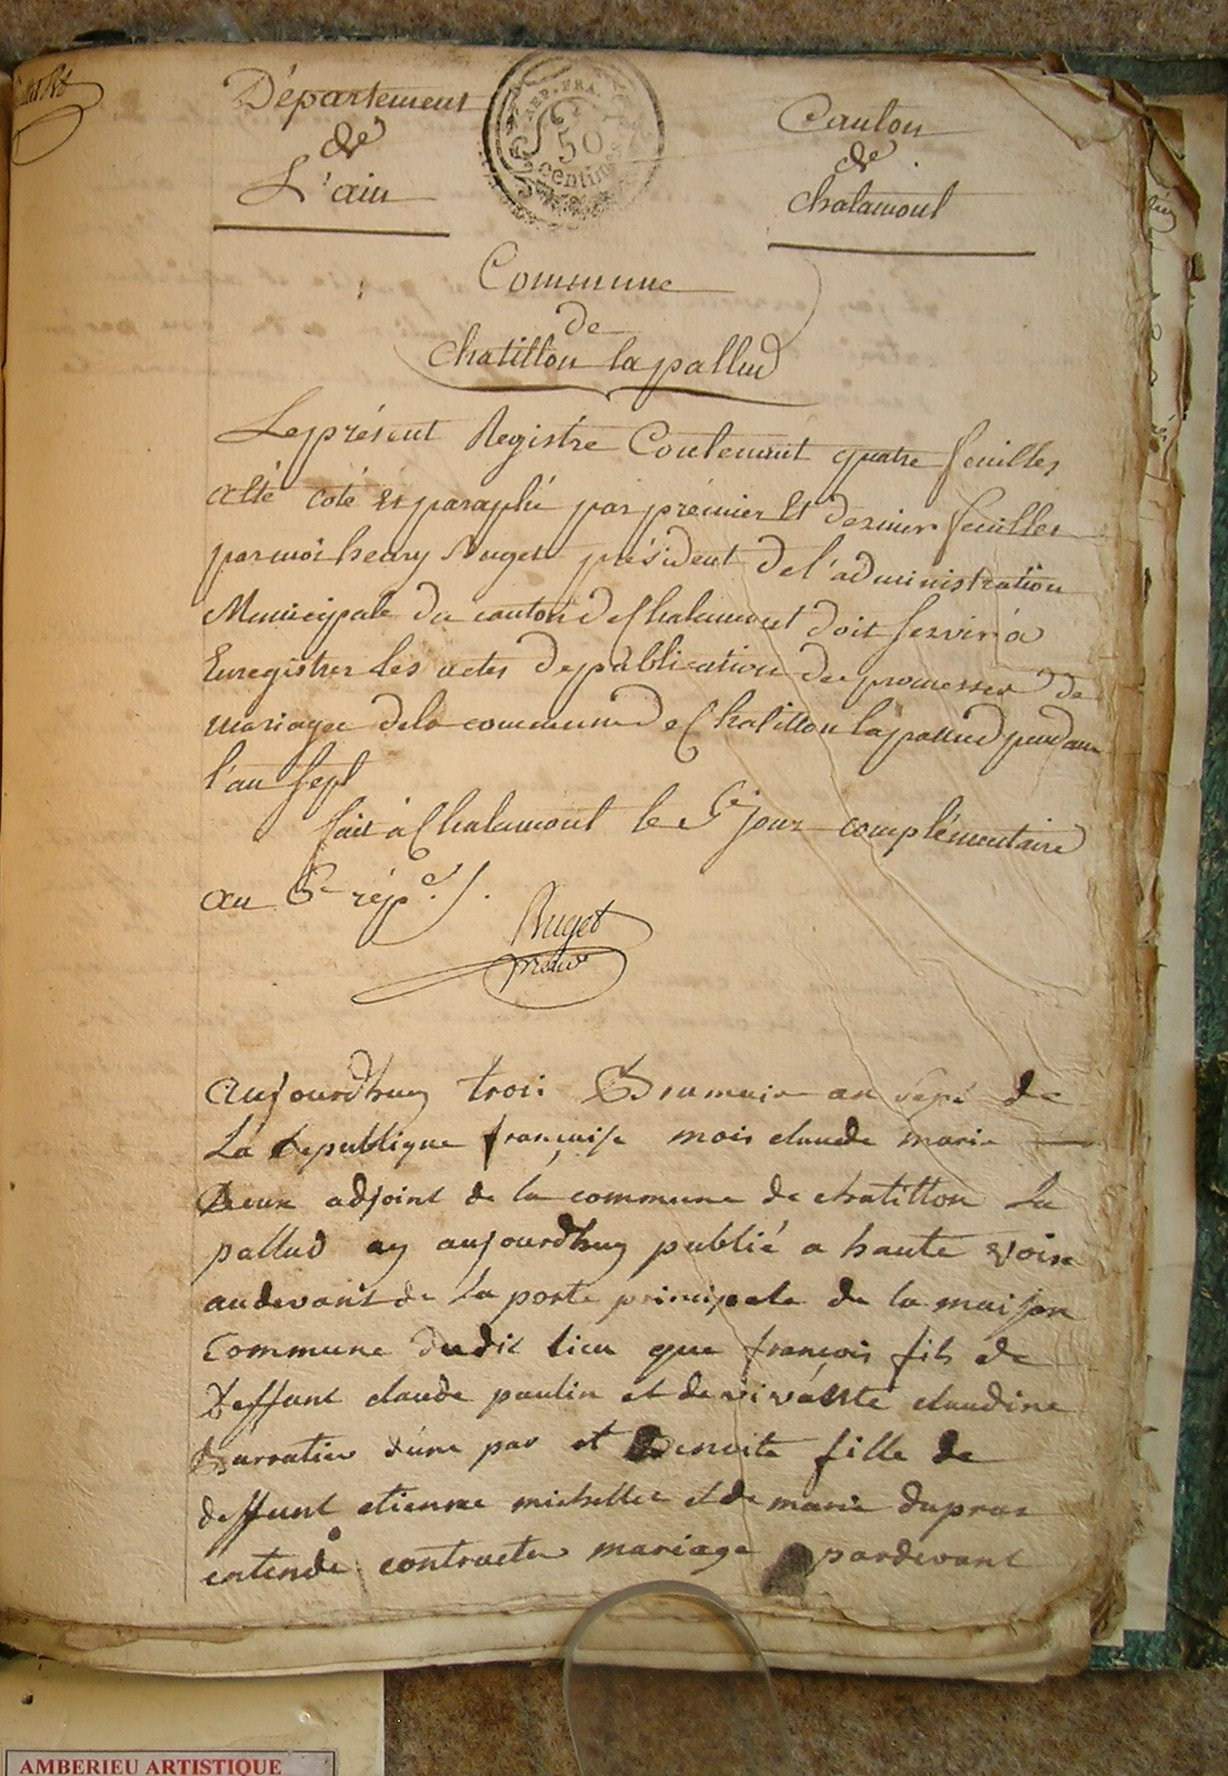 Département
de
L'ain
REP. FRA.
50
centimes
Canton
de
chalamont
Commune
de
chatillon la pallud
Le présent Registre Contenant quatre feuilles
a été coté et paraphé par prémier et dernier feuilles
par moi henry Ruget président de l'administration
Municipale du canton de Chalamont doit servir à
Enregistrer les actes de publication des promesses de
mariages de la commune de Chatillon la pallud pendant
l'an sept
fait à Chalamont le 5e jour complémentaire
an 6e rép.e
Ruget
aujourdhuy trois Brumaire an sept de
La republique française mois claude marie
adjoint de la commune de chatillon La
pallud ay aujourdhuy publié a haute voix
au devant de la porte principale de la maison
Commune dudit lieu que françois fils de
deffunt claude paulin et de vivante claudine
d'une par et Benoite fille de
deffunt etienne et de marie dupras
entende contracter mariage pardevant
AMBERIEU ARTISTIQUE